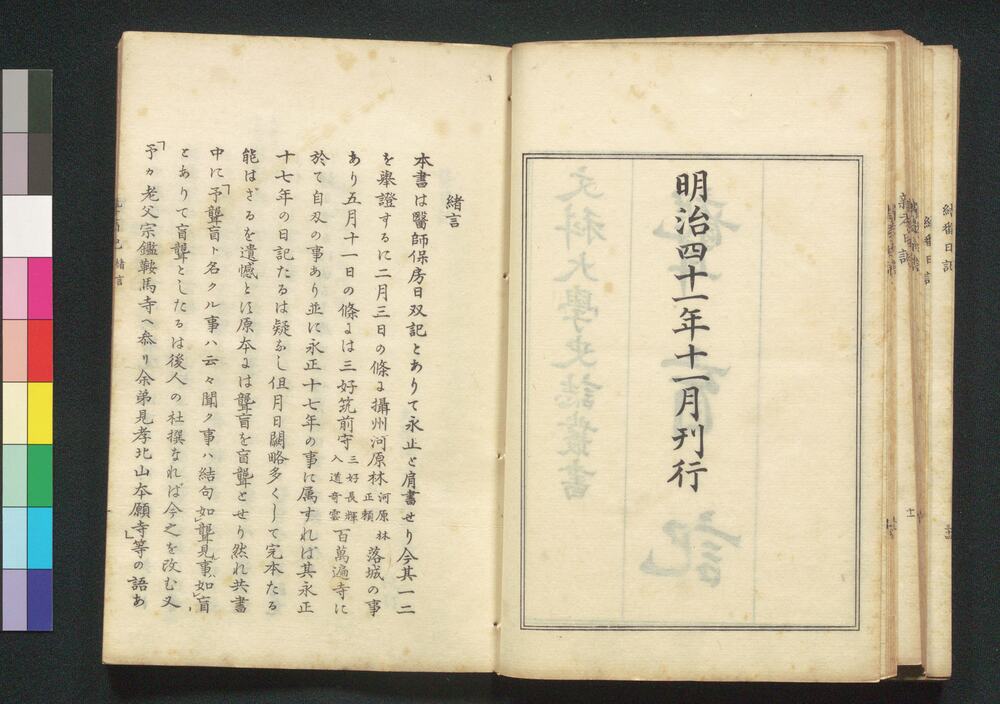 明治四十一年十一月刊行
緒言
本書は醫師保房日双記とありて永止と肩書せり今其一二
を擧證するに二月三日の條に攝州河原林河原林正頼落城の事
あり五月十一日の條には三好筑前守三好長輝入道奇雲百萬遍寺に
於て自刄の事あり並に永正十七年の事に属すれば其永正
十七年の日記たるは疑なし但月日闕略多くして完本たる
能はざるを遺憾とに原本には聾盲を盲聾とせり然れ共書
中に「予聾盲ト名クル事ハ云々聞ク事ハ結句如聾見事如盲」
とありて盲聾としたるは後人の杜撰なれば今之を改む又
「予カ老父宗鑑鞍馬寺ヘ叅リ余弟見孝北山本願寺」等の語あ